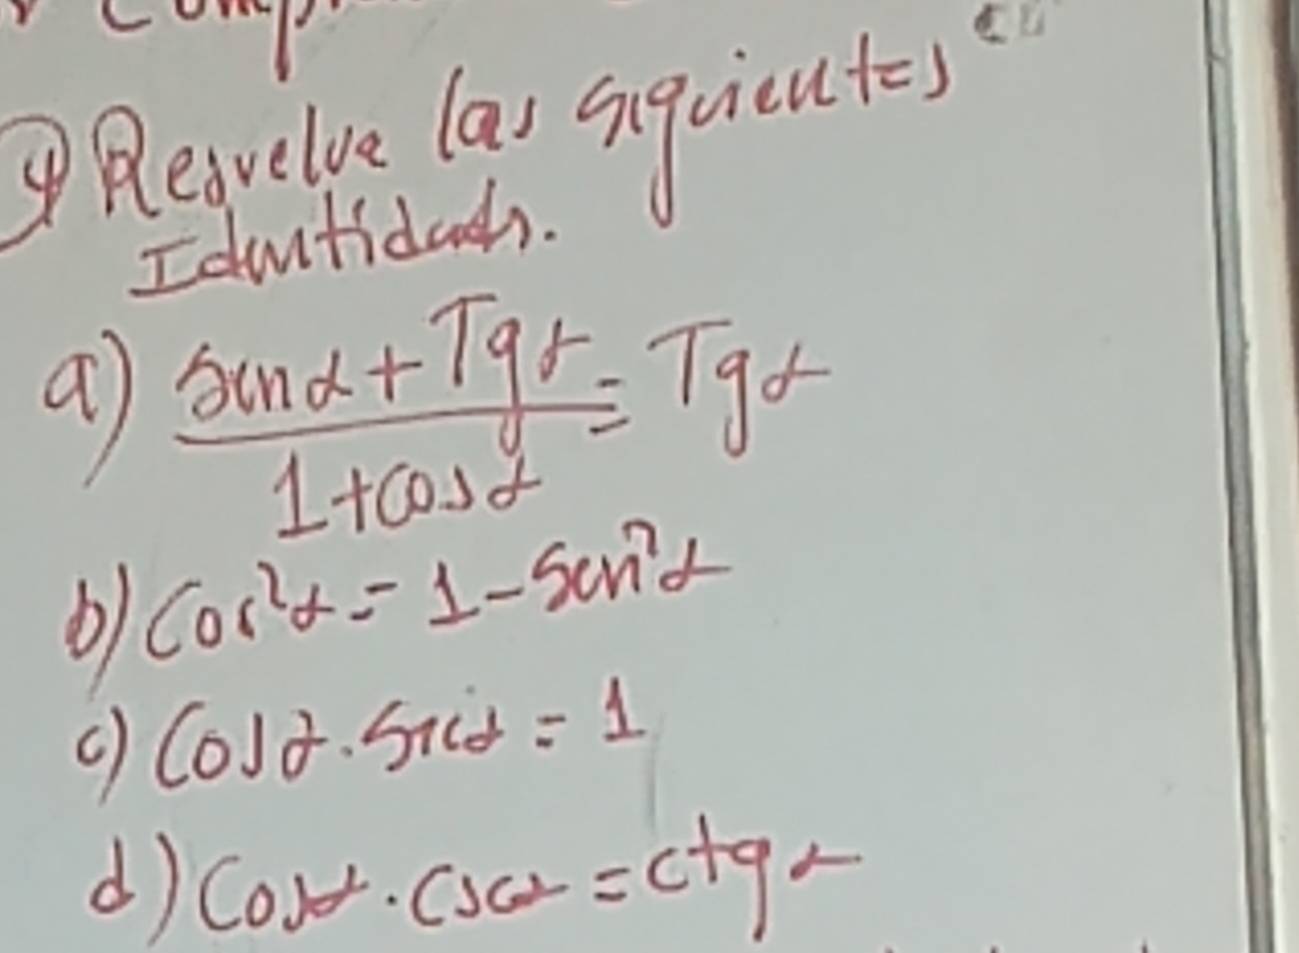 4) Resuelve las siguientes
Identidads.
a) Sen α + Tg α / 1 + cos α = Tg α
b) Cos²α = 1 - Sen²α
c) Cos α . Sec α = 1
d) Cos α . Csc α = ctg α